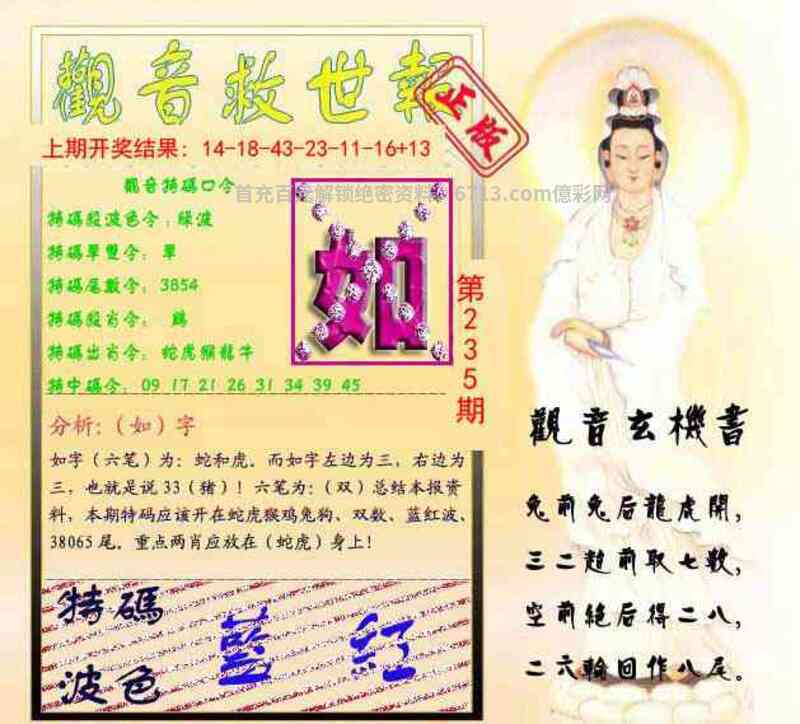 觀音救世報
正版
上期开奖结果：14-18-43-23-11-16+13
觀音特碼口令
首充百元解锁绝密资料 6713.com億彩网
特碼殺波色令：綠波
特碼單雙令：單
特碼尾數令：3854
特碼殺肖令：鷄
特碼出肖令：蛇虎猴龍牛
特中碼令：09 17 21 26 31 34 39 45
如
第235期
分析：（如）字
如字（六笔）为：蛇和虎。而如字左边为三，右边为
三，也就是说33（猪）！六笔为：（双）总结本报资
料，本期特码应该开在蛇虎猴鸡兔狗、双数、蓝红波、
38065尾。重点两肖应放在（蛇虎）身上！
特碼
波色
藍 紅
觀音玄機書
兔前兔后龍虎開，
三二趙前取七數，
空前絕后得二八，
二六輪回作八尾。